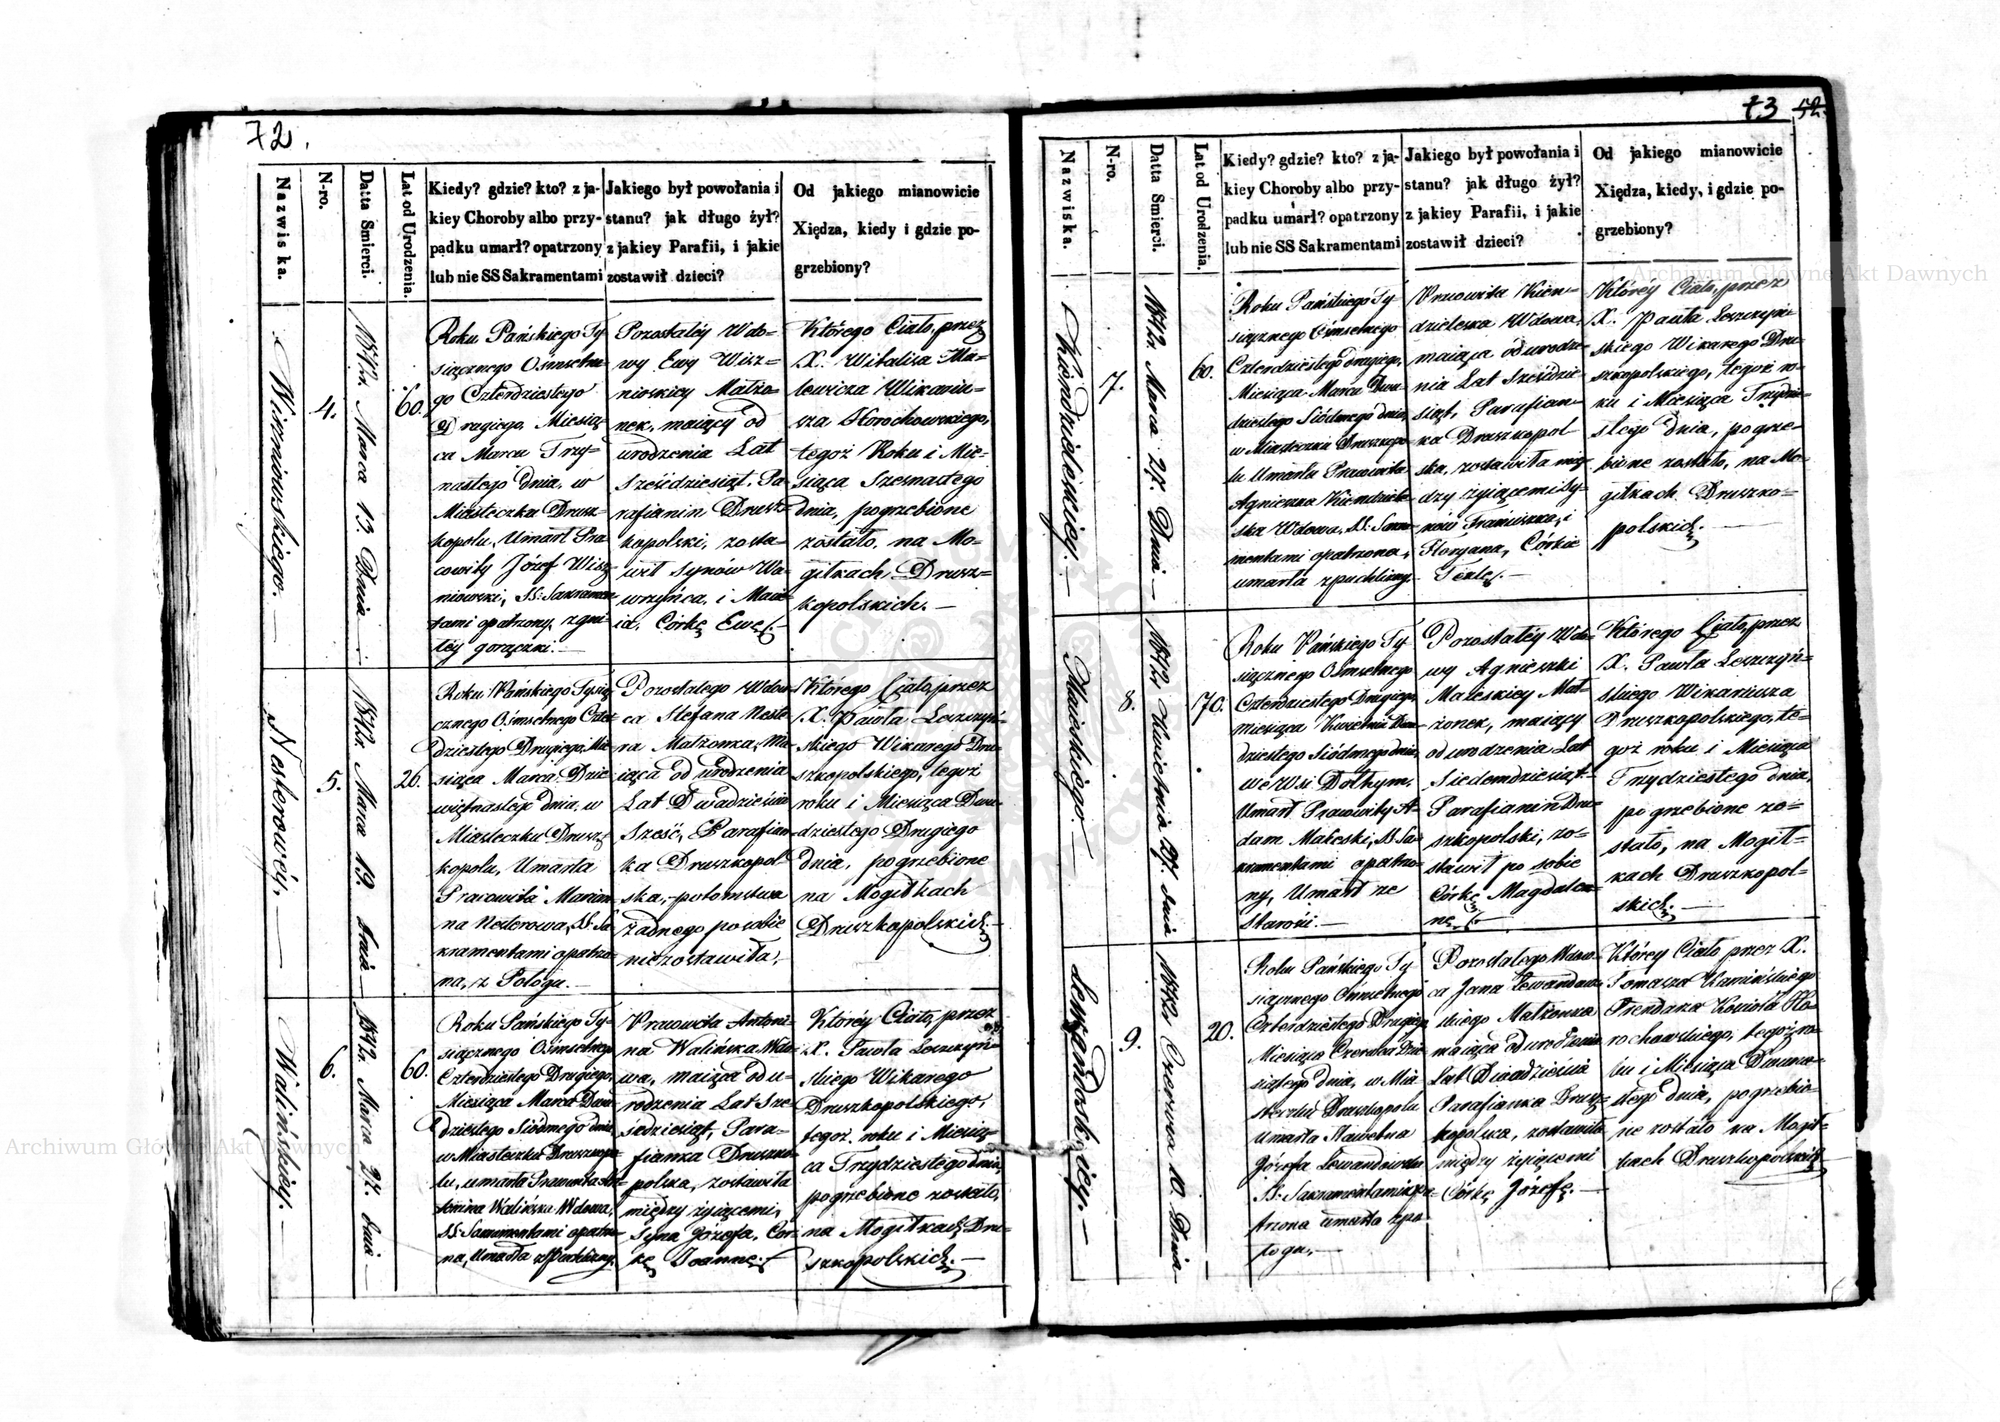 72.
Nazwiska.
N-ro.
Datta Smierci.
Lat od Urodzenia.
Kiedy? gdzie? kto? z ja-
kiey Choroby albo przy-
padku umarł? opatrzony
lub nie SS Sakramentami
Jakiego był powołania i
stanu? jak długo żył?
z jakiey Parafii, i jakie
zostawił dzieci?
Od jakiego mianowicie
Xiędza, kiedy i gdzie po-
grzebiony?
Wiszniowskiego.
4.
1842r. Marca 13. Dnia
60.
Roku Pańskiego Ty-
siącznego Ośmsetne-
go Czterdziestego
Drugiego, Miesią-
ca Marca Trzy-
nastego dnia, w
Miasteczku Drusz-
kopolu, Umarł Pra-
cowity Józef Wisz-
niowski, SS: Sakramen-
tami opatrzony, z gni-
łéy gorączki.
Pozostałéy Wdo-
wy Ewy Wisz-
niowskiey Małżo-
nek, maiący od
urodzenia Lat
Sześćdziesiąt, Pa-
rafianin Drusz-
kopolski, zosta-
wił synow Wa-
wrzyńca, i Macie-
ia, Córkę Ewę.
Którego Ciało, przez
X. Witalisa Ma-
lewicza Wikariu-
sza Horochowskiego,
tegoż Roku i Mie-
siąca Szesnastego
dnia, pogrzebione
zostało, na Mo-
giłkach Drusz-
kopolskich.
Nesterowéy.
5.
1842r. Marca 19. dnia
26.
Roku Pańskiego Tysią-
cznego Ośmsetnego Czter-
dziestego Drugiego, Mie-
siąca Marca, Dzie-
więtnastego dnia, w
Miasteczku Drusz-
kopolu, Umarła
Pracowita Marian-
na Nesterowa, SS: Sa-
kramentami opatrzo-
na, z Pologu.
Pozostałego Wdow-
ca Stefana Neste-
ra Małżonka, Ma-
iąca od urodzenia
Lat Dwadzieścia
Sześć, Parafian-
ka Druszkopol-
ska, potomstwa
żadnego po sobie
niezostawiła.
Którego Ciało, przez
X. Pawła Leszczyń-
skiego Wikarego Dru-
szkopolskiego, tegoż
roku i Miesiąca Dwu-
dziestego Drugiego
dnia, pogrzebione
na Mogiłkach
Druszkopolskich.
Walińskiey.
6.
1842r. Marca 27. dnia
60.
Roku Pańskiego Ty-
siącznego Ośmsetnego
Czterdziestego Drugiego,
Miesiąca Marca Dwu-
dziestego Siódmego dnia
w Miasteczku Druszkopo-
lu, umarła Pracowita An-
tonina Walińska Wdowa,
SS: Sakramentami opatrzo-
na, umarła z Puchliny.
Pracowita Antoni-
na Walińska Wdo-
wa, maiąca od u-
rodzenia Lat Sze-
śćdziesiąt, Para-
fianka Druszko-
polska, zostawiła
między żyiącemi,
Syna Józefa, Cór-
kę Joannę.
Któréy Ciało, przez
X. Pawła Leszczyń-
skiego Wikarego
Druszkopolskiego,
tegoż roku i Miesią-
ca Trzydziestego dnia,
pogrzebione zostało,
na Mogiłkach Dru-
szkopolskich.
73 52.
Nazwiska.
N-ro.
Datta Smierci.
Lat od Urodzenia.
Kiedy? gdzie? kto? z ja-
kiey Choroby albo przy-
padku umarł? opatrzony
lub nie SS Sakramentami
Jakiego był powołania i
stanu? jak długo żył?
z jakiey Parafii, i jakie
zostawił dzieci?
Od jakiego mianowicie
Xiędza, kiedy, i gdzie po-
grzebiony?
7.
1842r. Marca 27. Dnia
60.
Roku Pańskiego Ty-
siącznego Ośmsetnego
Czterdziestego drugiego,
Miesiąca Marca Dwu-
dziestego Siódmego dnia,
w Miasteczku Druszkopo-
lu Umarła Pracowita
Agnieszka
Wdowa, SS: Sakra-
mentami opatrzona,
umarła z puchliny.
Pracowita
Wdowa,
maiąca od urodze-
nia Lat Sześćdzie-
siąt, Parafian-
ka Druszkopol-
ska, zostawiła mię-
dzy żyiącemi Sy-
nów Franciszka, i
Floryana, Córkie
Teklę.
Któréy Ciało, przez
X. Pawła Leszczyń-
skiego Wikarego Dru-
szkopolskiego, tegoż ro-
ku i Miesiąca Trzydzie-
stego dnia, pogrze-
bione zostało, na Mo-
giłkach Druszko-
polskich.
8.
1842r. Kwietnia 27. dnia
70.
Roku Pańskiego Ty-
siącznego Ośmsetnego
Czterdziestego Drugiego,
miesiąca Kwietnia Dwu-
dziestego Siódmego dnia,
we Wsi
Umarł Pracowity A-
dam Maieski, SS Sa-
kramentami opatrzo-
ny, Umarł ze
starości.
Pozostałéy Wdo-
wy Agnieszki
Maieskiey Mał-
żonek, maiący
od urodzenia Lat
Siedemdziesiąt
Parafianin Dru-
szkopolski, zo-
stawił po sobie
Córkę Magdale-
nę.
Którego Ciało, przez
X. Pawła Leszczyń-
skiego Wikariusza
Druszkopolskiego, te-
goż roku i Miesiąca
Trzydziestego dnia,
pogrzebione zo-
stało, na Mogił-
kach Druszkopol-
skich.
Lewandowskiey.
9.
1842r Czerwca 10. Dnia
20.
Roku Pańskiego Ty-
siącznego Ośmsetnego
Czterdziestego Drugiego
Miesiąca Czerwca Dzie-
siątego dnia, w Mia-
steczku Druszkopolu
umarła Sławetna
Józefa Lewandowska
SS: Sakramentami opa-
trzona umarła z po-
logu.
Pozostałego Wdow-
ca Jana Lewandow-
skiego Małżonka
maiąca od urodzenia
Lat Dwadzieścia
Parafianka Drusz-
kopolska, zostawiła
między żyiącemi
Córkę Józefę.
Któréy Ciało przez X.
Tomasza Kamińskiego
Prendarza Kościoła Ho-
rochowskiego, tegoż ro-
ku i Miesiąca Dwuna-
stego dnia, pogrzebio-
ne zostało na Mogił-
kach Druszkopolskich
Archiwum Główne Akt Dawnych
Archiwum Główne Akt Dawnych